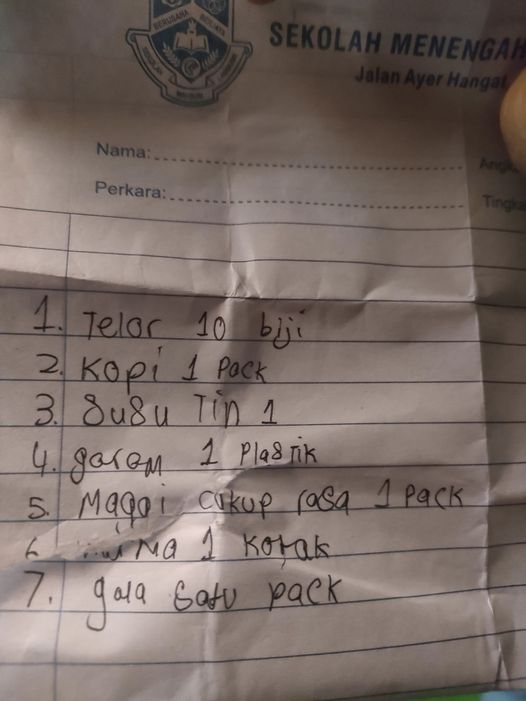 BERUSAHA BERJAYA
SEKOLAH MENENGAH
Jalan Ayer Hangat
Nama:
Perkara:
Tingka
1. Telor 10 biji
2. Kopi 1 Pack
3. Susu Tin 1
4. garam 1 Plastik
5. Maggi cukup rasa 1 Pack
6 1 Kotak
7. gula satu pack